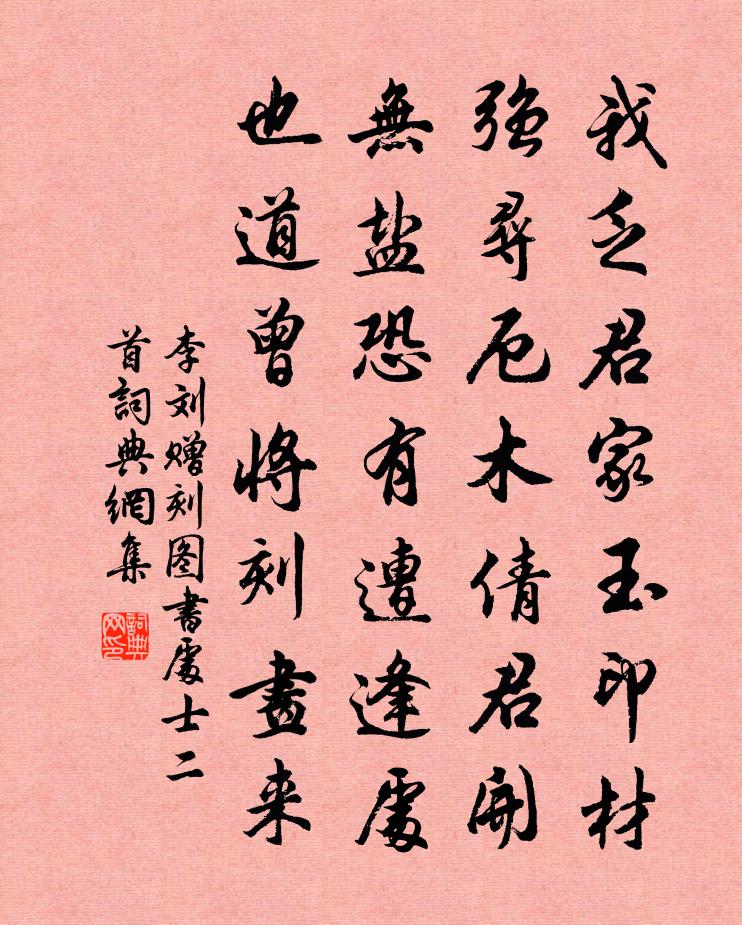 我乏君家玉印材
強尋卮木倩君開
無盐恐有遭逢處
也道曾将刻畫来
李刘赠刻图書處士二
首詞典網集
詞典
网印